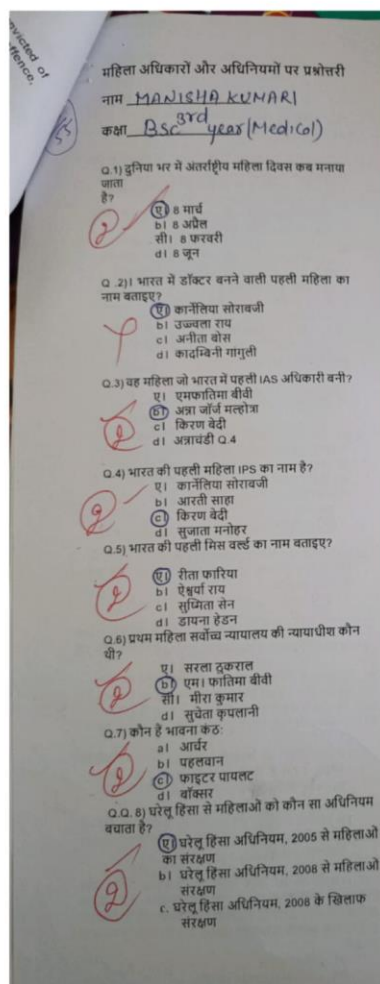 nvicted of
ffence,
महिला अधिकारों और अधिनियमों पर प्रश्नोत्तरी
नाम MANISHA KUMARI
कक्षा BSC 3rd year (Medical)
Q.1) दुनिया भर में अंतर्राष्ट्रीय महिला दिवस कब मनाया
जाता
है?
ए) 8 मार्च
b। 8 अप्रैल
सी। 8 फरवरी
d। 8 जून
2
Q .2)। भारत में डॉक्टर बनने वाली पहली महिला का
नाम बताइए?
ए) कार्नेलिया सोराबजी
b। उज्ज्वला राय
c। अनीता बोस
d। कादम्बिनी गांगुली
Q.3) वह महिला जो भारत में पहली IAS अधिकारी बनी?
ए। एमफातिमा बीवी
b) अन्ना जॉर्ज मल्होत्रा
c। किरण बेदी
d। अन्नाचंडी Q.4
2
Q.4) भारत की पहली महिला IPS का नाम है?
ए। कार्नेलिया सोराबजी
b। आरती साहा
c) किरण बेदी
d। सुजाता मनोहर
2
Q.5) भारत की पहली मिस वर्ल्ड का नाम बताइए?
ए) रीता फारिया
b। ऐश्वर्या राय
c। सुष्मिता सेन
d। डायना हेडन
2
Q.6) प्रथम महिला सर्वोच्च न्यायालय की न्यायाधीश कौन
थी?
ए। सरला ठुकराल
b) एम। फातिमा बीवी
सी। मीरा कुमार
d। सुचेता कृपलानी
2
Q.7) कौन हैं भावना कंठ:
a। आर्चर
b। पहलवान
c) फाइटर पायलट
d। बॉक्सर
2
Q.Q. 8) घरेलू हिंसा से महिलाओं को कौन सा अधिनियम
बचाता है?
ए) घरेलू हिंसा अधिनियम, 2005 से महिलाओं
का संरक्षण
b। घरेलू हिंसा अधिनियम, 2008 से महिलाओं
संरक्षण
c. घरेलू हिंसा अधिनियम, 2008 के खिलाफ
संरक्षण
2